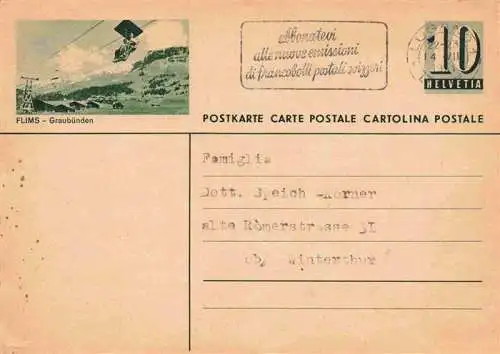 FLIMS – Graubünden
Abonatevi
alle nuove emissioni
di francobolli postali svizzeri
10
HELVETIA
POSTKARTE CARTE POSTALE CARTOLINA POSTALE
Famiglia
Dott. Speich -Korner
alte Römerstrasse 31
ob/ Winterthur